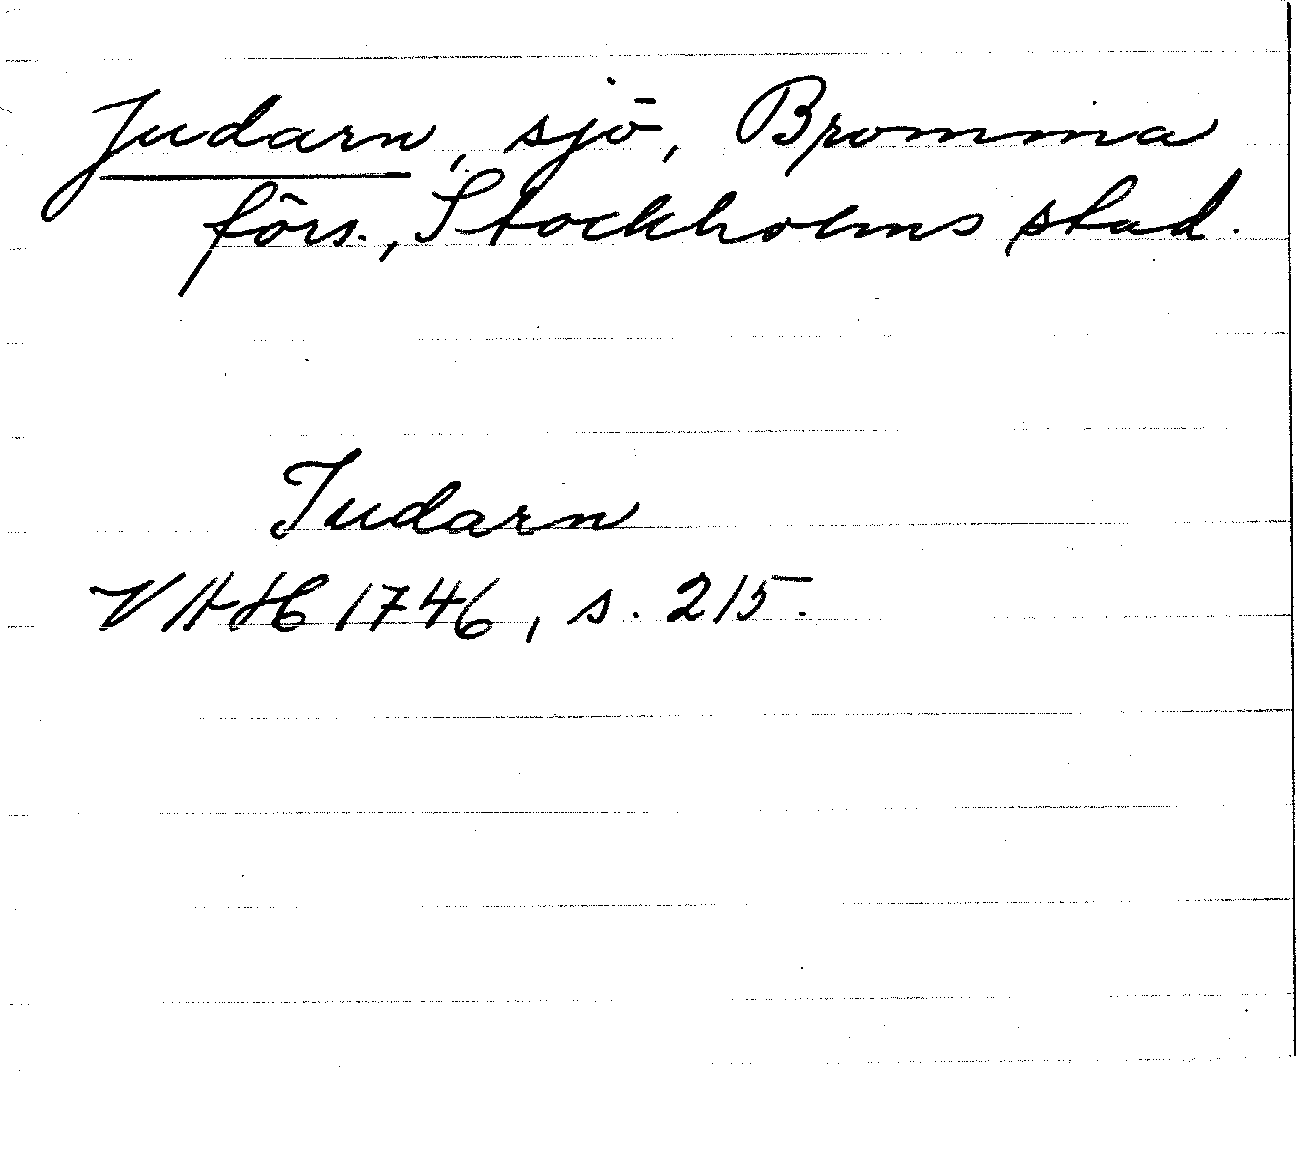 Judarn, sjö, Bromma
förs., Stockholms stad.
Iudarn
VAH 1746, s. 215.